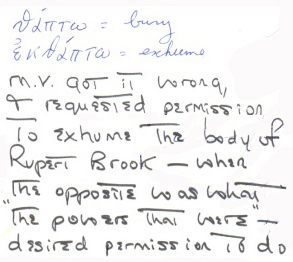 θάπτω = bury
ἐκθάπτω = exhume
M.V. got it wrong,
& requested permission
to exhume the body of
Rupert Brook — when
"the opposite was what"
the powers that were —
desired permission to do